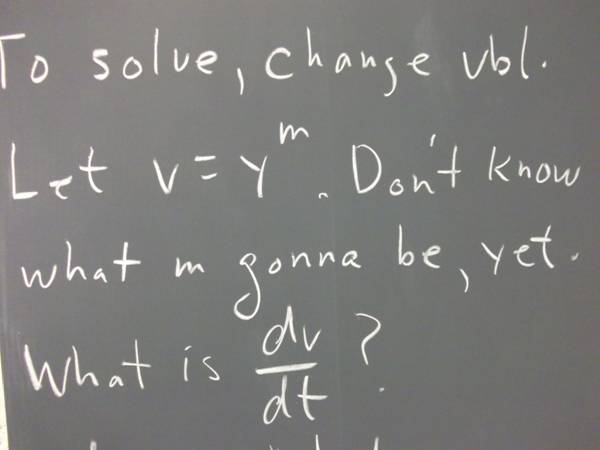 To solve, change vbl.
Let v = y^m. Don't know
what m gonna be, yet.
What is dv/dt?